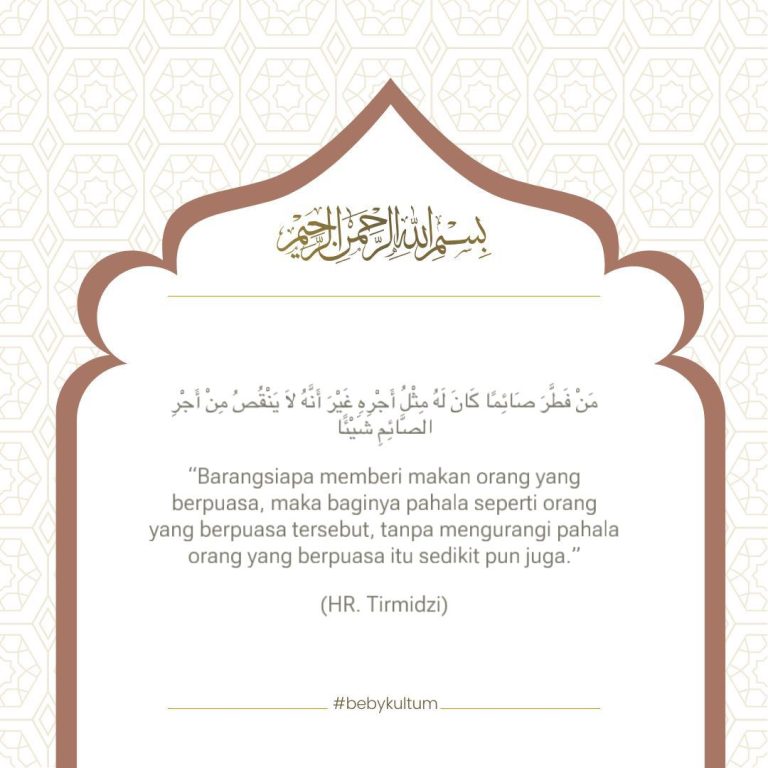 بِسْمِ اللهِ الرَّحْمَنِ الرَّحِيْمِ
مَنْ فَطَّرَ صَائِمًا كَانَ لَهُ مِثْلُ أَجْرِهِ غَيْرَ أَنَّهُ لاَ يَنْقُصُ مِنْ أَجْرِ
الصَّائِمِ شَيْئًا
“Barangsiapa memberi makan orang yang
berpuasa, maka baginya pahala seperti orang
yang berpuasa tersebut, tanpa mengurangi pahala
orang yang berpuasa itu sedikit pun juga.”
(HR. Tirmidzi)
#bebykultum